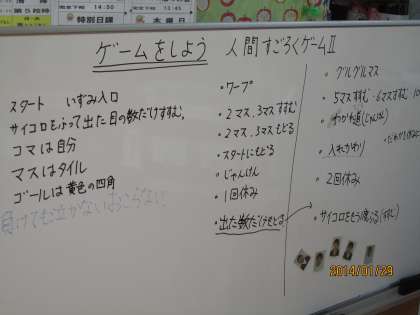 特別日課
木曜日
13:45
ゲームをしよう 人間すごろくゲームⅡ
スタート いずみ入口
サイコロをふって出た目の数だけすすむ。
コマは自分
マスはタイル
ゴールは黄色の四角
負けてもながないおこらない
・ワープ
・2マス、3マスすすむ
・2マス、3マスもどる
・スタートにもどる
・じゃんけん
・1回休み
・出た数だけもどる
・グルグルマス
・5マスすすむ・6マスすすむ・10
・わかれ道(じゃんけん)
・入れかわり
・だれかと
・2回休み
・サイコロをもう1度ふる(すすむ)
2014/01/29